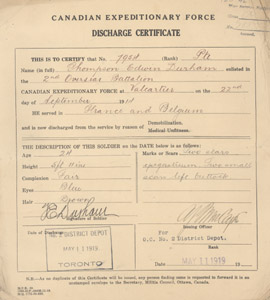 CANADIAN EXPEDITIONARY FORCE
DISCHARGE CERTIFICATE
THIS IS TO CERTIFY that No. (Rank) Pte
Name (in full) Thompson Edwin Durham enlisted in
the 2nd Overseas Battalion
CANADIAN EXPEDITIONARY FORCE at Valcartier on the 22nd
day of September 1914
HE served in France and Belgium
and is now discharged from the service by reason of Demobilization.
Medical Unfitness.
THE DESCRIPTION OF THIS SOLDIER on the DATE below is as follows:—
Age 24
Height 5ft
Complexion Fair
Eyes Blue
Hair Brown
Marks or Scars
Two small
scars left buttock
Signature of Soldier
Date of Discharge
DISTRICT DEPOT
MAY 11 1919
TORONTO
Issuing Officer
O.C. No. 2 District Depot.
Rank
Date MAY 11 1919
N.B.—As no duplicate of this Certificate will be issued, any person finding same is requested to forward it in an
unstamped envelope to the Secretary, Militia Council, Ottawa, Canada.